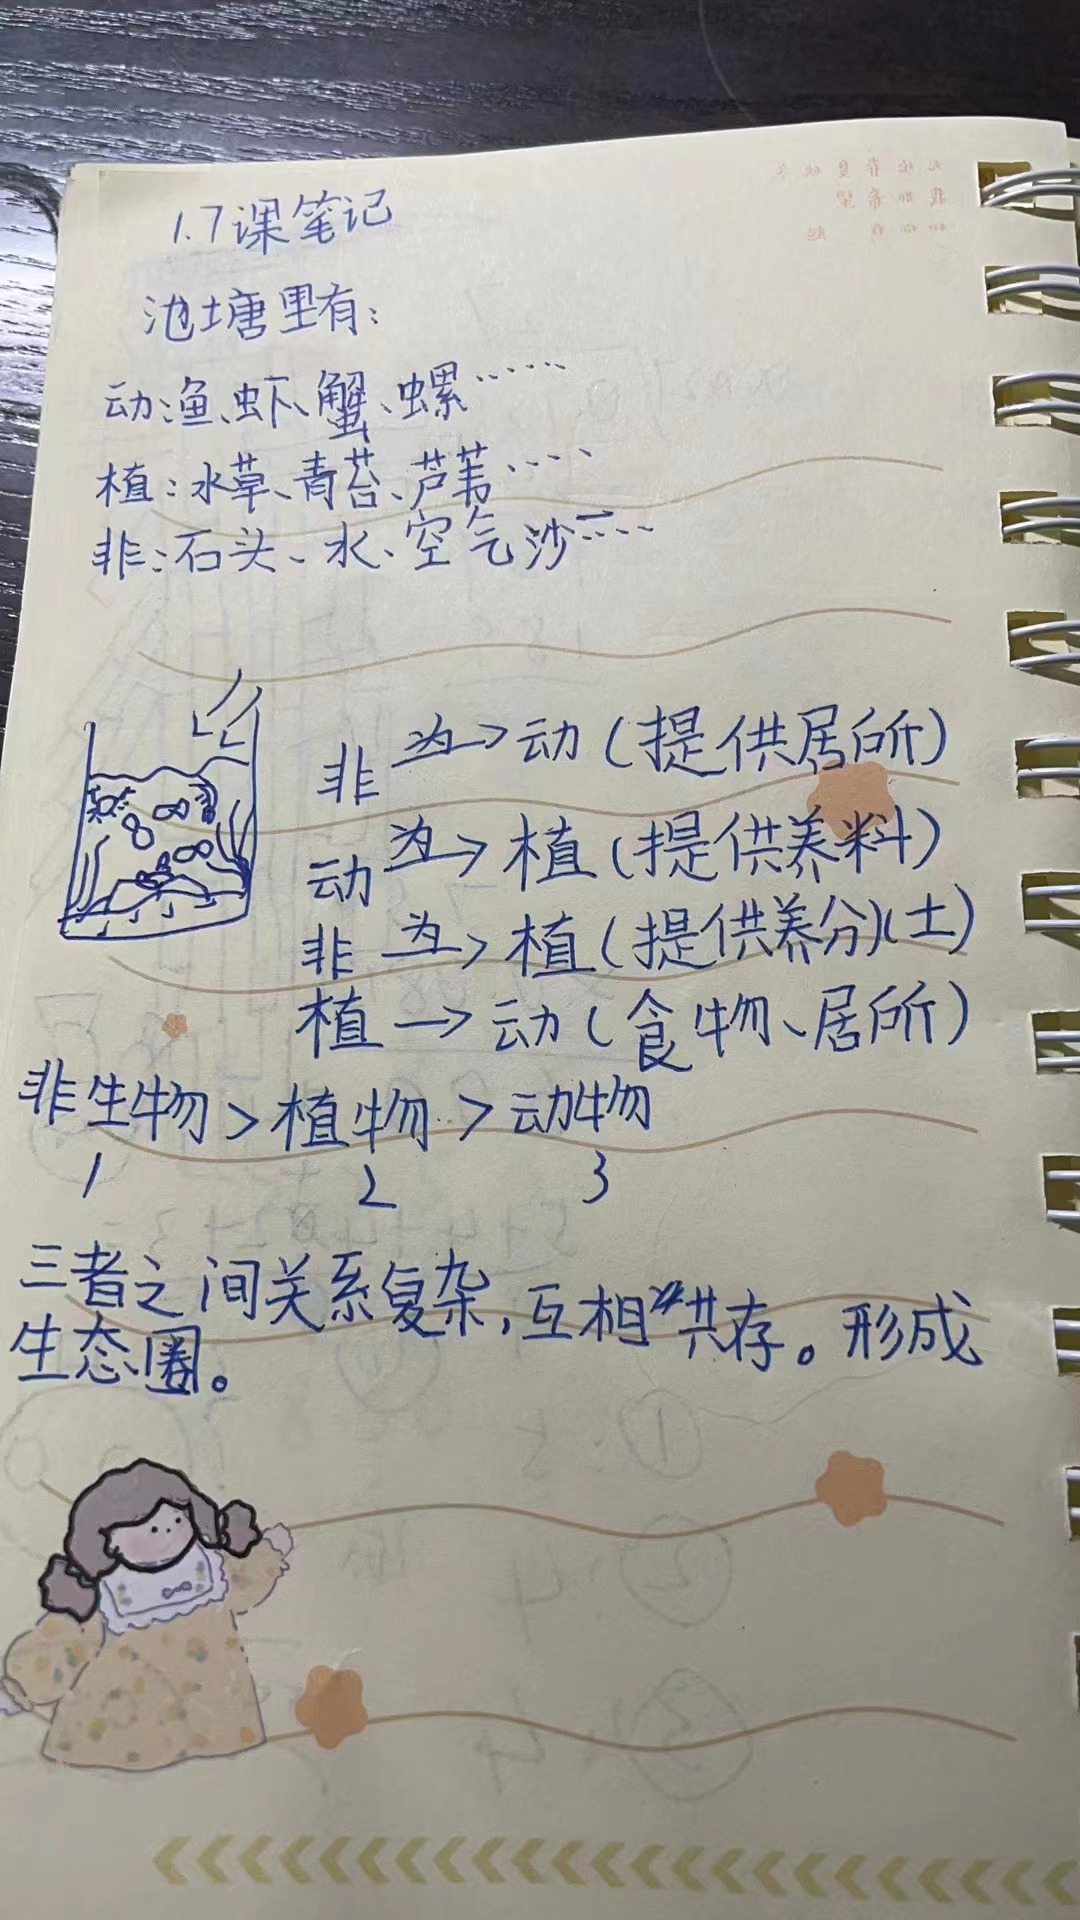 1.7课笔记
池塘里有:
动:鱼、虾、蟹、螺……
植:水草、青苔、芦苇……
非:石头、水、空气沙……
非 为→ 动(提供居所)
动 为→ 植(提供养料)
非 为→ 植(提供养分)(土)
植 → 动(食物、居所)
非生物>植物>动物
1 2 3
三者之间关系复杂,互相共存。形成
生态圈。